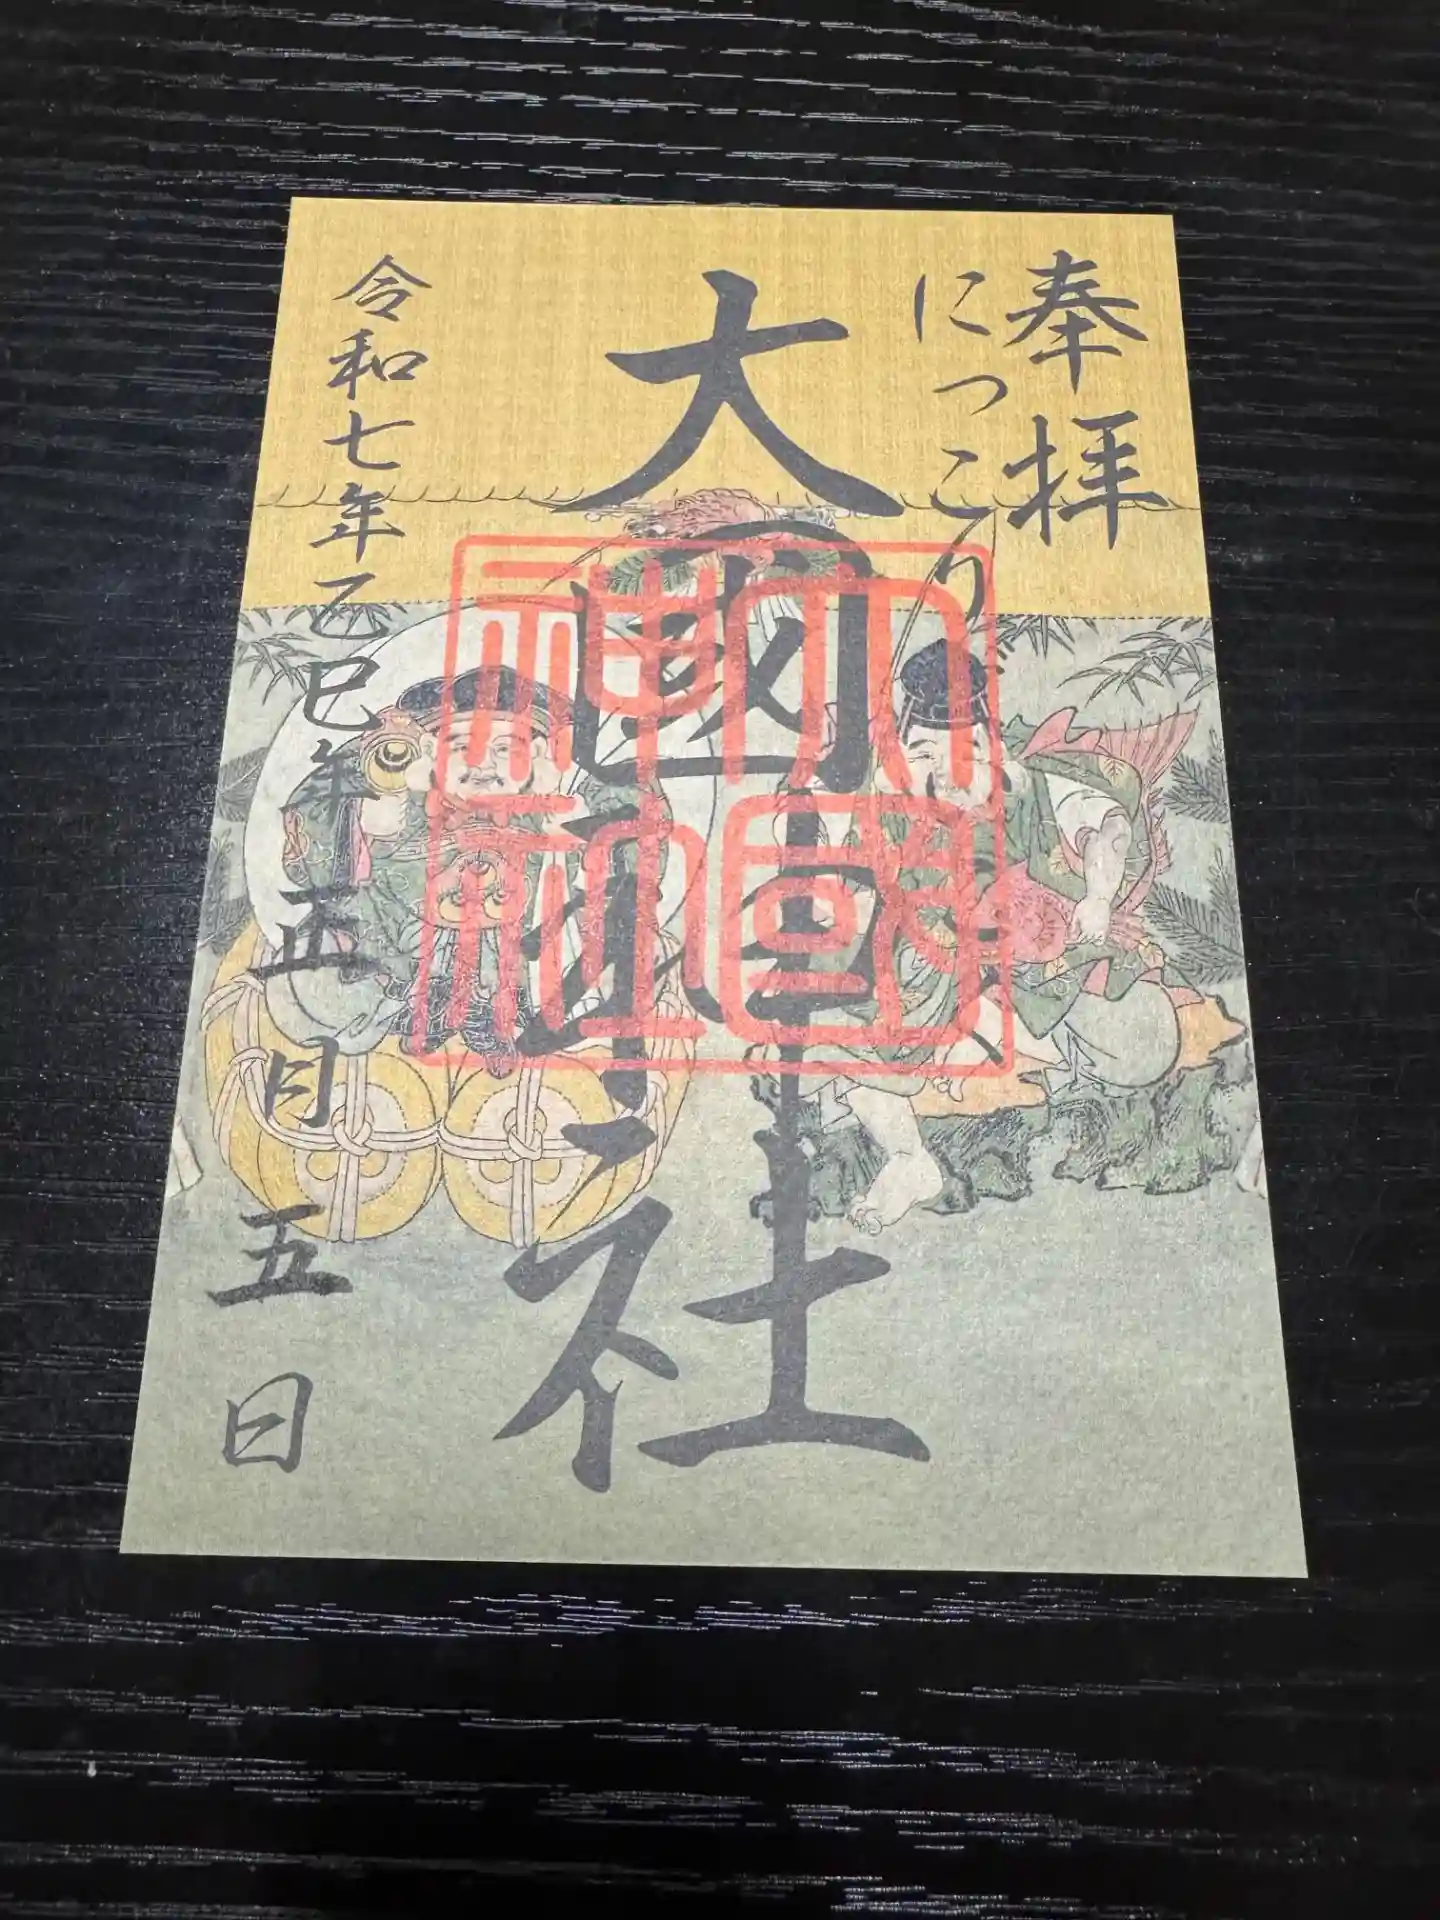 奉拝
にっこり
大國神社
令和七年乙巳年正月五日
大國
神社